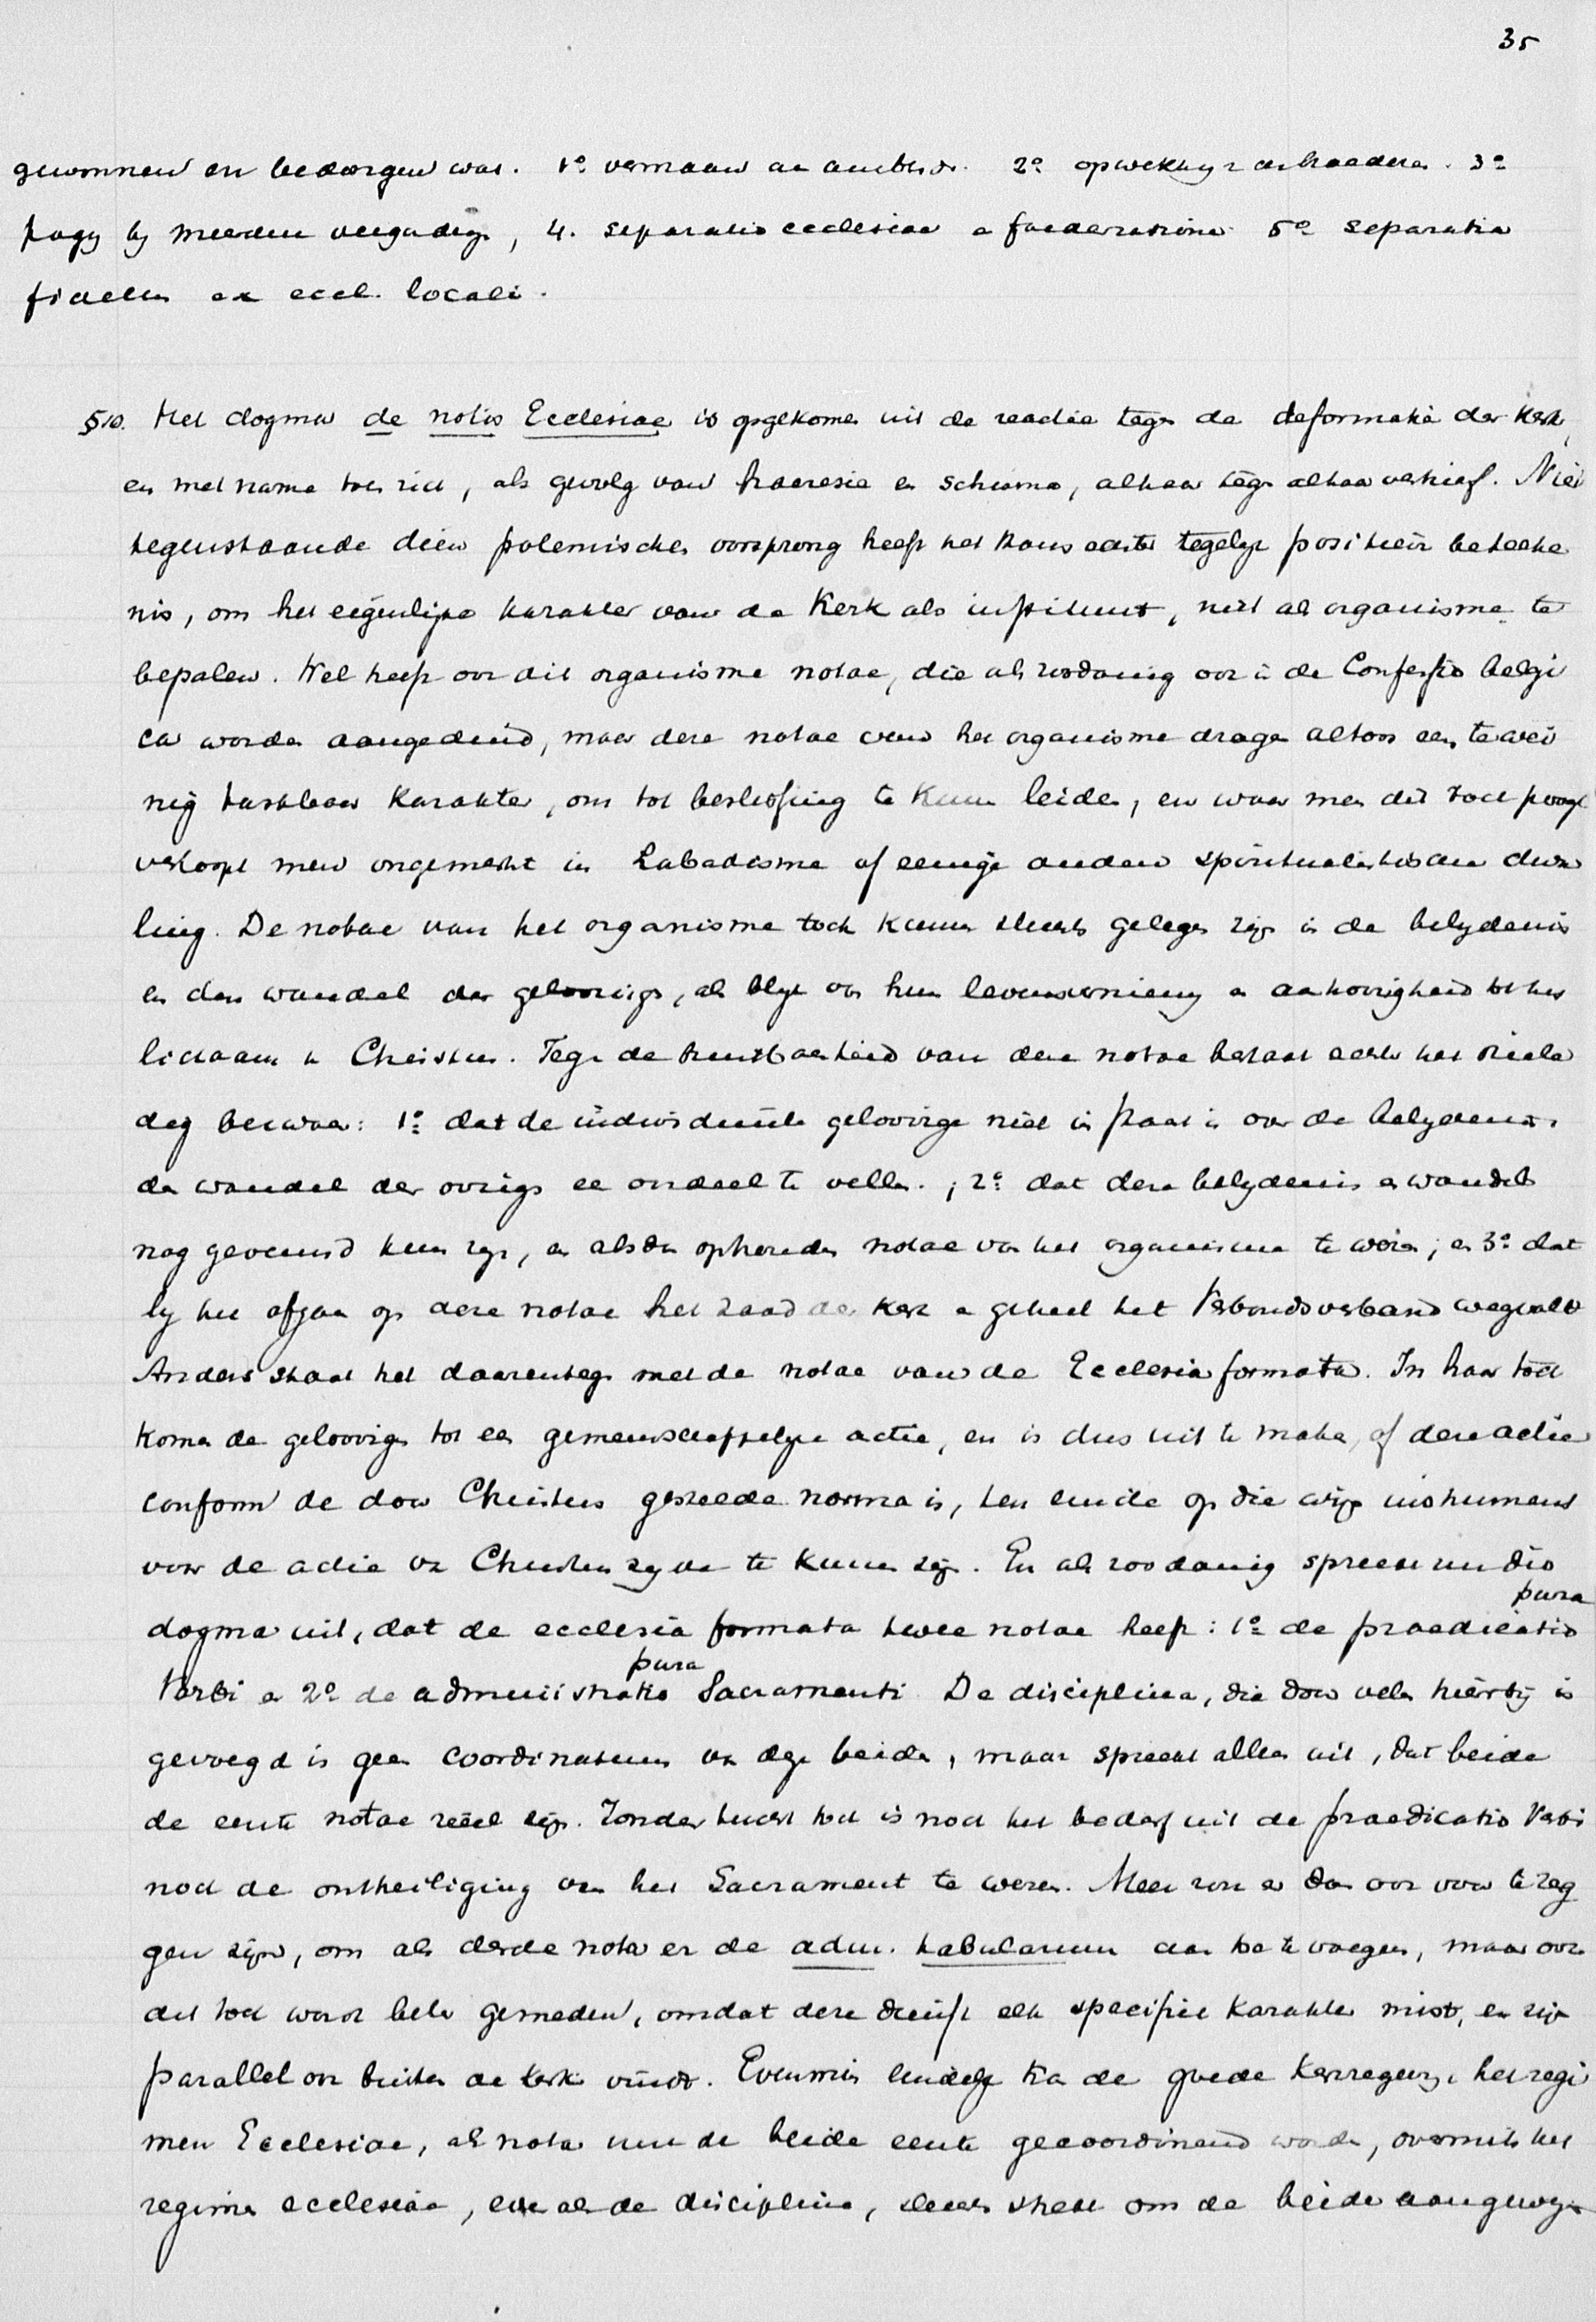 35
gewonnen en bedorgen was. 1º vermaan aan ambtsdr. 2º opwekking z ambtsaders. 3º
pogg bij meerdere vergaderg, 4. separatio ecclesiae a foederatione 5º separatio
fidelium ex eccl. locali.
§10. Het dogma de notis Ecclesiae is opgekomen uit de reactie tegen de deformatie der Kerk,
en met name toen zich, als gevolg van haeresie en schisma, altaar tegen altaar verhief. Niet
tegenstaande dien polemischen oorsprong heeft het thans echter tegelijk positieve beteeke
nis, om het eigenlijke karakter van de Kerk als instituut, niet als organisme te
bepalen. Wel heeft ook dit organisme notae, die als zoodanig ook in de Confessio belgi
ca worden aangeduid, maar deze notae van het organisme dragen altoos een te wei
nig tastbaar karakter, om tot beslissing te kunnen leiden, en waar men dit toch poogt
verloopt men ongemerkt in Labadisme of eenige andere spiritualistische dwa
ling. De notae van het organisme toch kunnen slechts gelegen zijn in de belydenis
en den wandel der geloovigen, als blyk van hun levensvernieuwing en aanhoorigheid tot het
lichaam v Christus. Tegen de bruikbaarheid van deze notae bestaat echter het drieële
dig bezwaar: 1º dat de individueele geloovige niet in staat is over de belydenis en
de wandel der overigen een oordeel te vellen; 2º dat deze belydenis en wandel
nog geveinsd kunnen zijn, en alsdan ophouden notae van het organisme te wezen; en 3º dat
by het afgaan op deze notae het zaad der Kerk en geheel het Verbondsverband wegvalt
Anders staat het daarentegen met de notae van de Ecclesia formata. In haar toch
komen de geloovigen tot een gemeenschappelyke actie, en is dus uit te maken, of deze actie
conform de door Christus gestelde norma is, ten einde op die wijze instrument
voor de actie van Christus zyde te kunnen zijn. En als zoodanig spreekt nu dit
dogma uit, dat de ecclesia formata twee notae heeft: 1º de praedicatio pura
Verbi en 2º de administratio pura Sacramenti. De disciplina, die door velen hierbij is
gevoegd is geen coordinatum van deze beide, maar spreekt alleen uit, dat beide
de eerste notae reëel zijn. Zonder tucht toch is noch het bederf uit de praedicatio Verbi
noch de ontheiliging van het Sacrament te weren. Meer zou er dan ook voor te zeg
gen zijn, om als derde nota er de adm. tabularum aan toe te voegen, maar ook
dit toch wordt beter gemeden, omdat deze dienst een specifiek karakter mist, en zijn
parallel ook buiten de kerk vindt. Evenmin eindelijk kan de goede Kerkregering, het regi
men Ecclesiae, als nota met de beide eerste gecoordineerd worden, overmits het
regimen ecclesiae, even als de disciplina, slechts strekt om de beide aangewezen